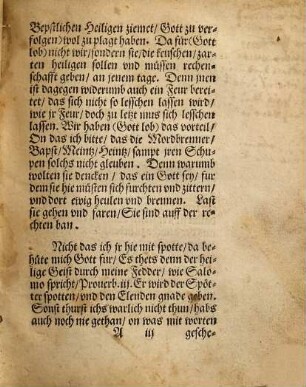 Bepstlichen Heiligen ziemet/ Gott zu ver-
folgen) wol zu plagt haben. Da für (Gott
lob) nicht wir/ sondern sie/ die keuschen/ zar-
ten heiligen sollen vnd müssen rechen-
schafft geben/ an jenem tage. Denn jnen
ist dagegen widerumb auch ein Feur berei-
tet/ das sich nicht so lesschen lassen wird/
wie jr Feur/ doch zu letzt mus sich lesschen
lassen. Wir haben (Gott lob) das vorteil/
On das ich bitte/ das die Mordbrenner/
Bapst/ Meintz/ Heintz/ sampt jren Schu-
pen solchs nicht gleuben. Denn warumb
wolten sie dencken/ das ein Gott sey/ fur
dem sie hie müsten sich furchten vnd zittern/
vnd dort ewig heulen vnd brennen. Last
sie gehen vnd faren/ Sie sind auff der re-
chten ban.
Nicht das ich jr hie mit spotte/ da be-
hüte mich Gott fur/ Es thets denn der hei-
lige Geist durch meine Fedder/ wie Salo-
mo spricht/ Prouerb. iij. Er wird der Spöt-
ter spotten/ vnd den Elenden gnade geben.
Sonst thurst ichs warlich nicht thun/ habs
auch noch nie gethan/ on was mit worten
A iij gesche-